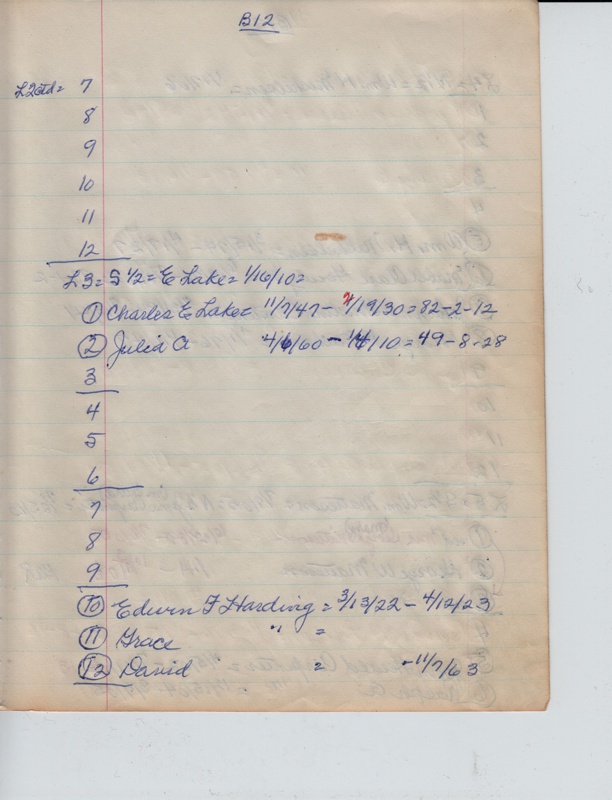 B12
L2 ctd = 7
8
9
10
11
12
L3 = S 1/2 = E Lake = 1/16/10 =
① Charles E Lake = 11/7/47 - /19/30 = 82-2-12
② Julia A 4/6/60 - 1/4/10 = 49-8-28
3
4
5
6
7
8
9
⑩ Edwin F Harding = 3/13/22 - 4/12/23
⑪ Grace " =
⑫ David = -11/7/63